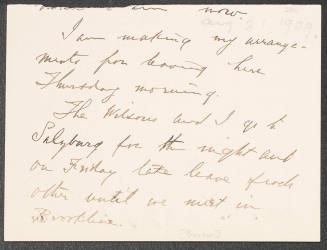 now
Aug 21 1909.
I am making my arrange-
ments for leaving here
Thursday morning.
The Wilsons and I go to
Salzburg for the night and
on Friday take leave of each
other until we meet in
Brookline.